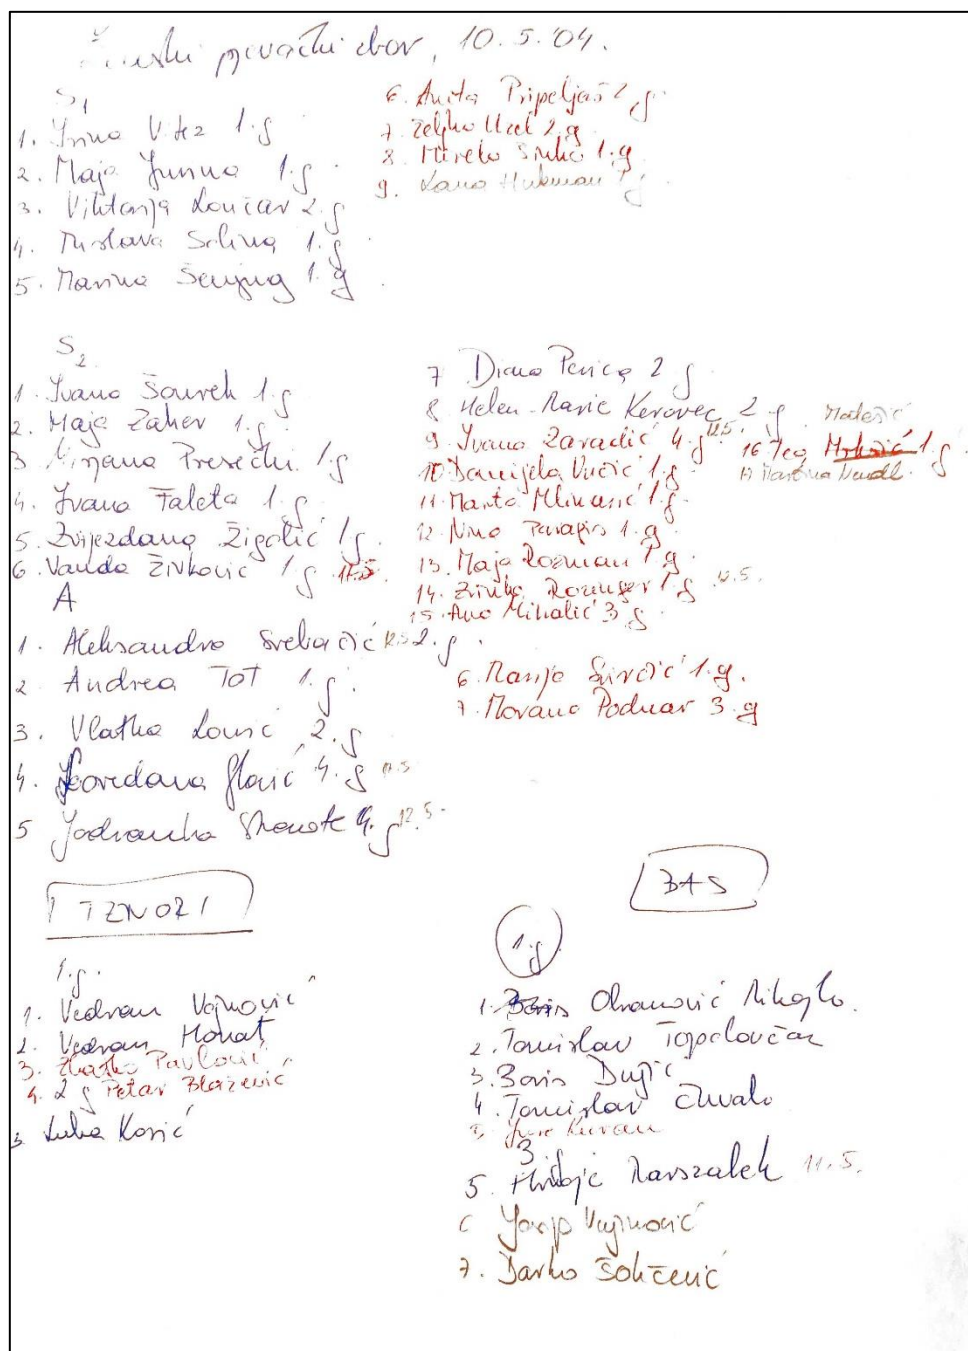 Ženski pjevački zbor, 10.5.'04.
S1
1. Irina Vitez 1.g
2. Maja Junma 1.g
3. Viktorija Lončar 2.g
4. Mislava 1.g
5. Marina 1.g
6. Anita Pripeljaš 2.g
7. Željka 2.g
8. Mirela Sinko 1.g
9. Lana Hukman 1.g
S2
1. Ivana Šourek 1.g
2. Maja Zaher 1.g
3 Mirjana Presečki 1.g
4. Ivana Faleta 1.g
5. Zvijezdana Žigolić 1.g
6. Vanda Živković 1.g 12.5.
7 Diana Perica 2.g
8 Helen-Marie Kerovec 2.g
9. Ivana Zaradić 4.g 12.5.
10. Danijela Vučić 1.g
11. Marta Mlinarić 1.g
12. Nina Parapis 1.g
13. Maja Rozman 1.g
14. Zrinka 1.g 12.5.
15. Ana Mihalić 3.g
Matešić
16 Tea 1.g
17 Martina Mendl.
A
1. Aleksandra Srebačić 12.5 2.g
2 Andrea Tot 1.g.
3. Vlatka Lonić 2.g
4. Loredana Glavić 4.g 12.5
5 Jadranka 4.g 12.5.
6. Marija 1.g.
7. Morana Podnar 3.g
TENORI
1.g.
1. Vedran Vojnović
2. Vedran Monat
3. Zlatko Pavlović
4. 2 g Petar Blažević
3 Luka Kosić
BAS
1.g.
1. Obranović Mihajlo.
2. Tomislav Topolovčan
3. Boris Dujić
4. Tomislav Čuvalo
5 Jure
3.g
5. Hrvoje Marszalek 11.5.
6 Josip Vujnović
7. Darko Šokčević